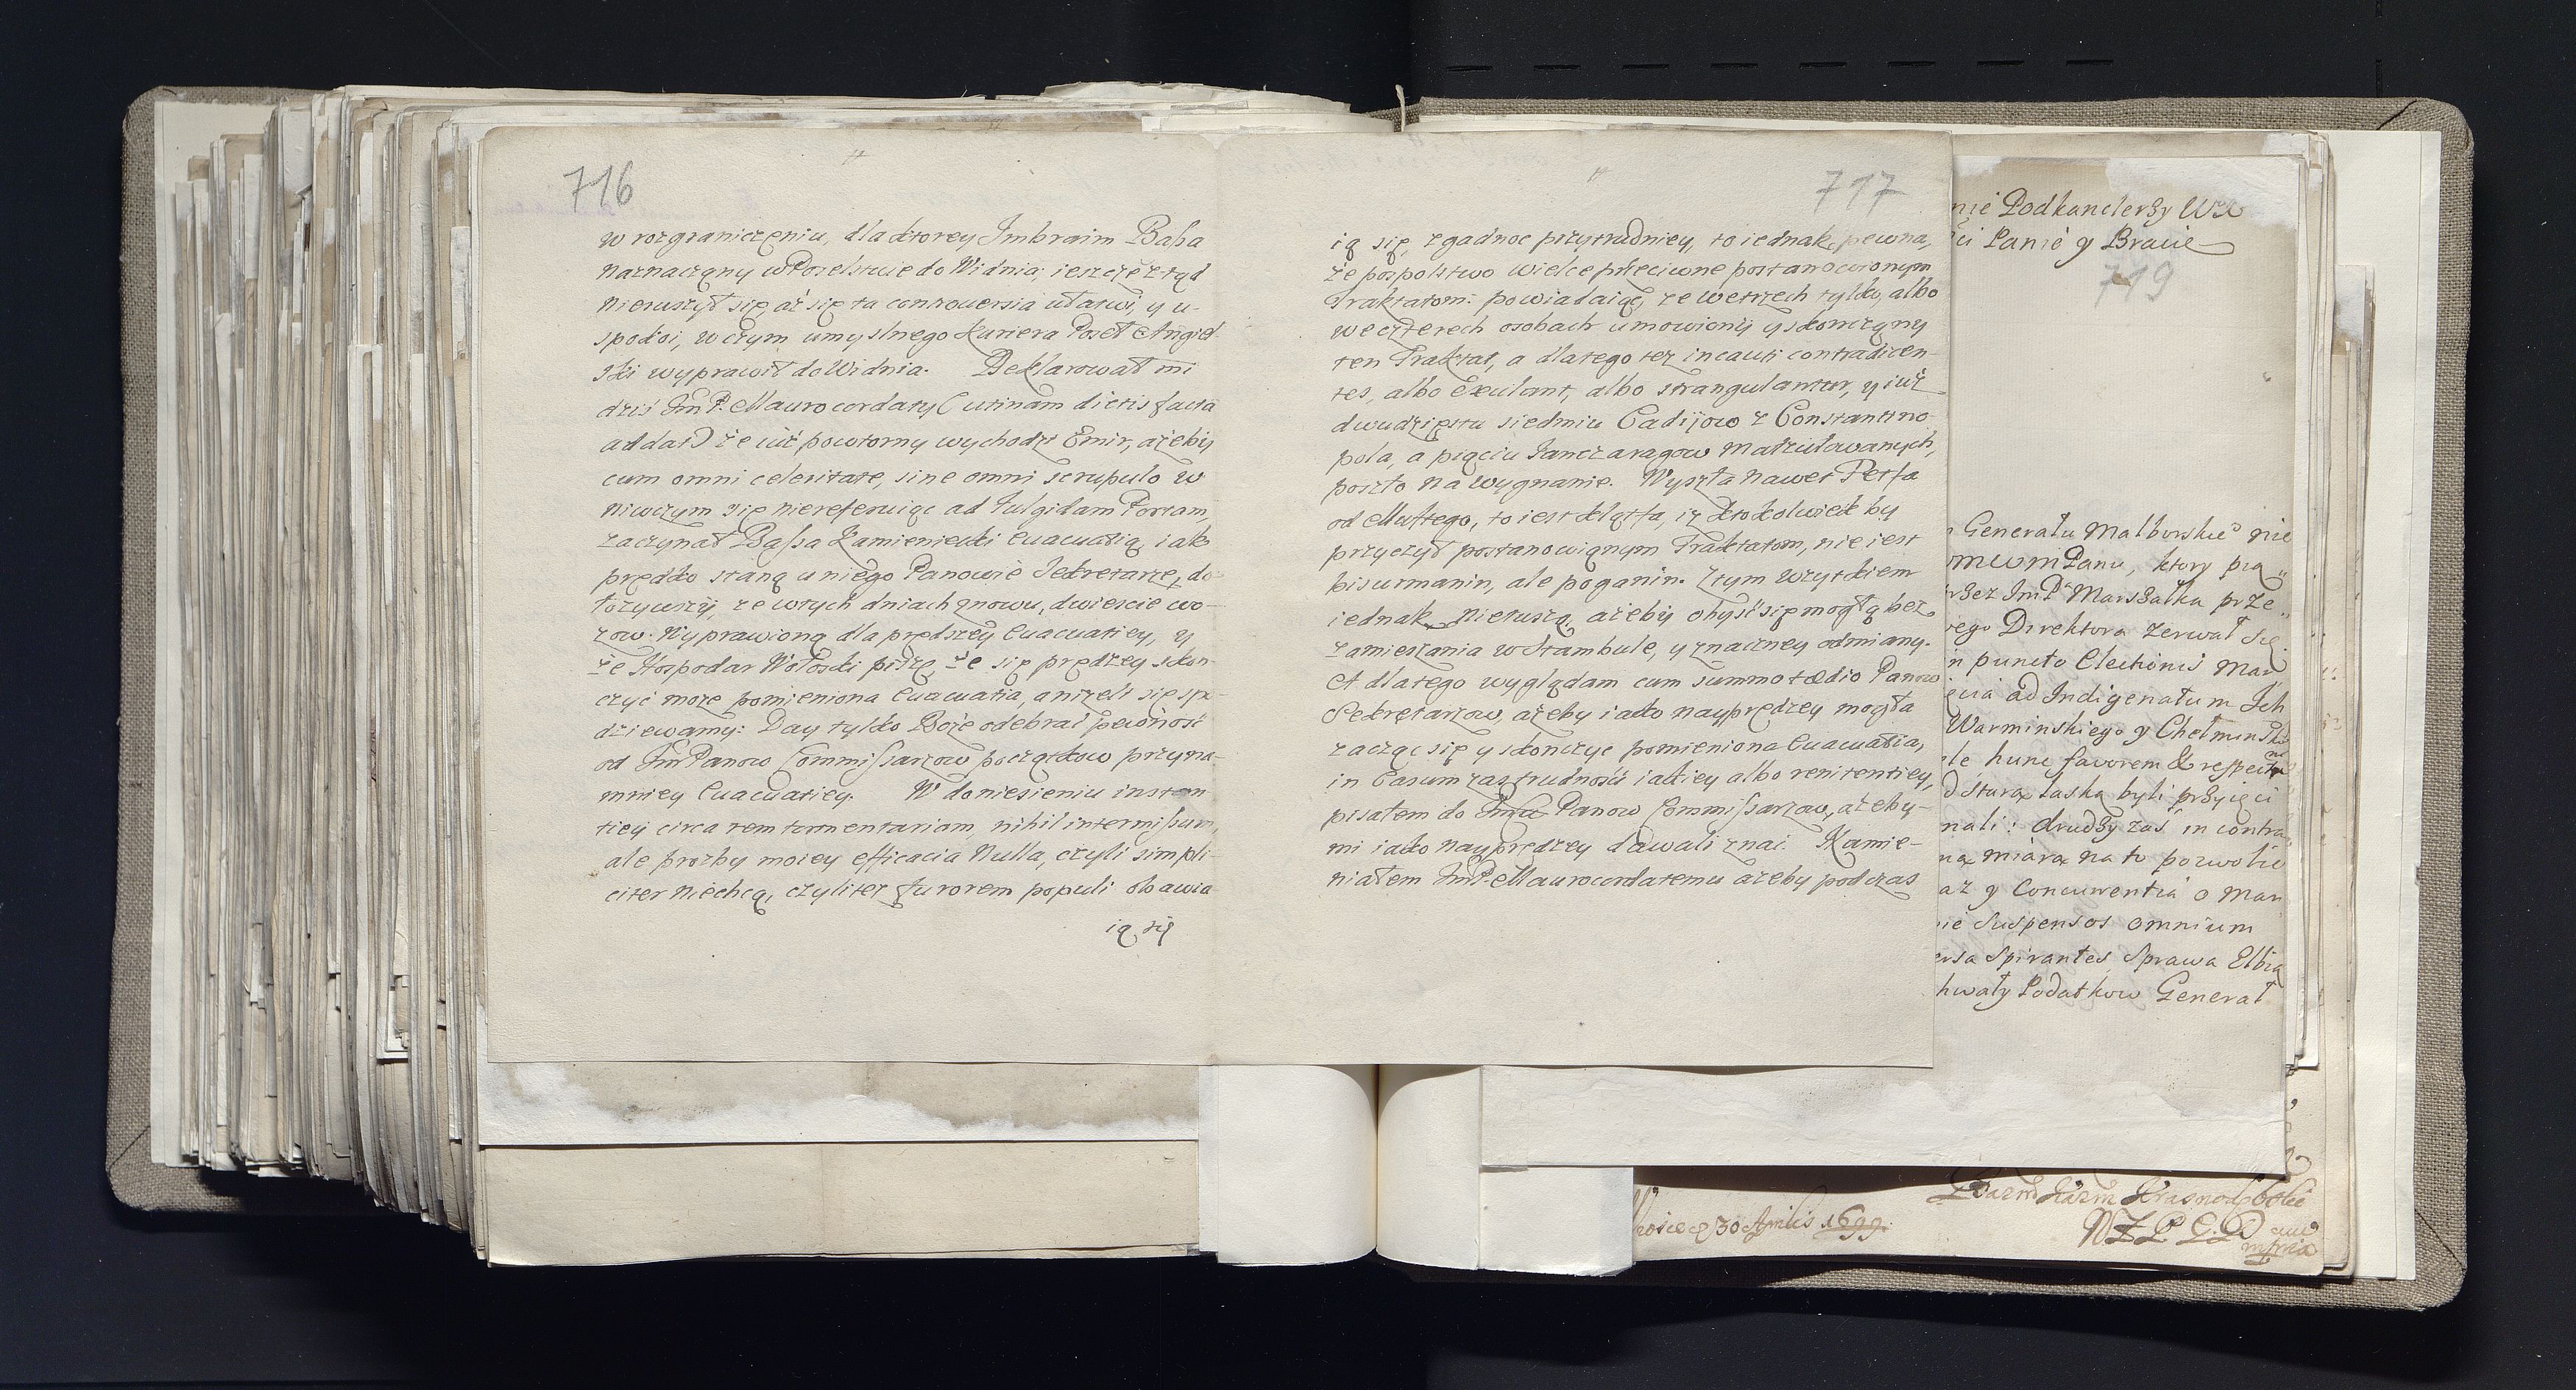 716
w rozgraniczeniu, dla ktorey Imbraim Baßa
naznacząny w Poselstwie do Widnia, ieszcze ztąd
nieruszył się, aż się ta controuersia ułatwi, y u-
spokoi, w czym umyslnego Kuriera Poseł Angiel
ski wyprawił do Widnia. Deklarował mi
dzis ImP. Maurocordaty (utinam dictis facta
addat) że iuż powtorny wychodzi Emir, ażeby
cum omni celeritate, sine omni scrupulo w
niwczym się niereferuiąc ad Fulgidam Portam,
zaczynał Baßa Kamieniecki Euacuatią, iak
prędko staną u niego Panowie Sekretarze, do
łozywszy, ze wtych dniach znowu, dwiescie wo-
zow. Wyprawiono dla prędszey Euacuatiey, y
że Hospodar Wołoski pisze, że się prędzey skon-
czyć moze pomieniona Euacuatia, anizeli się spo-
dziewamy: Day tylko Boże odebrać pewnosc
od ImPanow Commißarzow początkow przyna-
mniey Euacuatiey. W doniesieniu instan
tiey circa rem tormentariam, nihil intermißum,
ale prozby moiey efficacia Nulla, czyli simpli-
citer niechcą, czyli tez furorem populi obawia
ią się
717
ią się, zgadnoc przytrudniey, to iednak pewna,
że pospolstwo wielce przeciwne postanowionym
Traktatom: powiadaiąc, ze wetrzech tylko, albo
we czterech osobach umowiony y skonczony
ten Traktat, a dlatego tez incauti contradicen-
tes, albo Exulant, albo strangulantur, y iuż
dwudziestu siedmiu Cadijow z Constantino-
pola, a pięciu Janczaragow
poszło na wygnanie. Wyszła nawet Petfa
od Muftego, to iest klątfa, iz ktokolwiek by
przyczył postanowionym Traktatom, nie iest
bisurmanin, ale poganin. Z tym wszytkiem
iednak nietuszą, ażeby obyść się mogło bez
zamieszania w Stambule, y znaczney odmiany.
A dlatego wyglądam cum summo tædio Panow
Sekretarzow, ażeby iako nayprędzey mogła
zacząc się y skonczyc pomieniona Euacuatia,
in Casum zaś trudności iakiey albo renitentiey,
pisałem do Panow Commißarzow, ażeby-
mi iako nayprędzey dawali znac. Kamie-
niałem ImP. Maurocordatemu ażeby podczas
nie Podkanclerzy WX
ci Panie y Bracie
719
Generału Malborskie° nie
Panu, ktory prę
bez ImP Marszałka prze
ego Direktora zerwał się
n puncto Electionis Mar
ad Indigenatum Ich
Warminskiego y Chełminski
le, hunc favorem & respectu
łaską byli przyięci
nali: drudzy zaś in contra
miarą na to pozwolic
az y Concurrentia o Mar
ie Suspensos omnium
ersa Spirantes Sprawa Elbią
hwały Podatkow Generał
30 Aprilis 1699.
Krasno